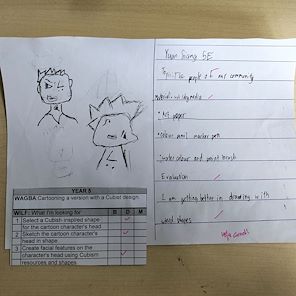 5E
Topic: The people of our community
Materials:
A3 paper
colour
marker pen
Water colour and paint brush
Evaluation
I am getting better in drawing with
weird shapes
YEAR 5
WAGBA Cartooning a version with a Cubist design.
WILF: What I'm looking for B D M
1 Select a Cubish-inspired shape for the cartoon character's head
2 Sketch the cartoon character's head in shape.
3 Create facial features on the character's head using Cubism resources and shapes.